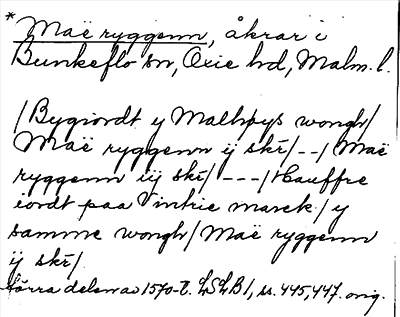 * Maë ryggenn, åkrar i
Bunkeflo sn, Oxie hd, Malm. l.
/Bygiordt y Malhpys wongh/
Maë ryggenn ij skr̄/--/Maë
ryggenn iij skr̄/---/Hauffre
iordt paa Vintrie marck/y
samme wongh/Maë ryggenn
ij skr̄/.
Norra delen av 1570-t. LSLB1, ss. 445, 447. orig.